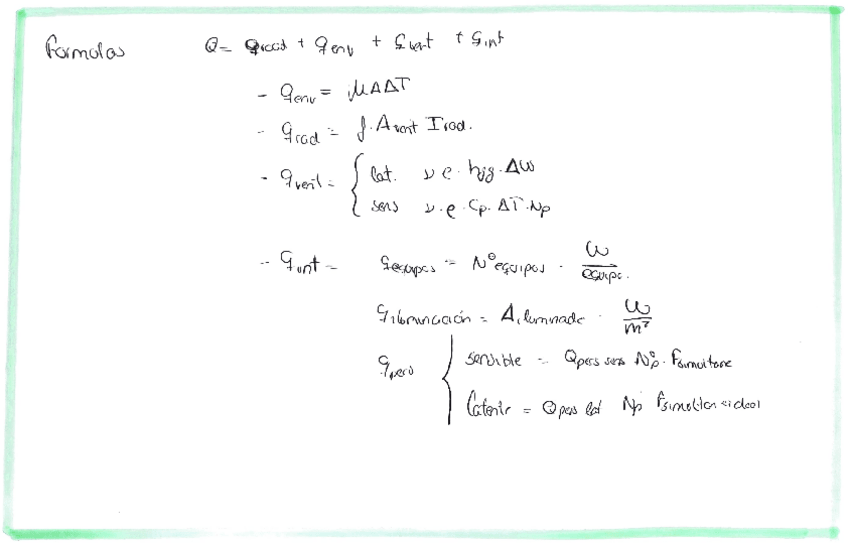 Formulas Q = qrad + qenv + qvent + qint
- qenv = μAΔT
- qrad = f. Avent Irad.
- qvent = { lat. v e. hfg. Δw
sens v. e. Cp. ΔT. Np
- qint = qequipos = Nº equipos . W/equipo.
qiluminación = Ailuminada . W/m²
qpers { sensible = Qpers sens Nºp. Fsimultane
latente = Qpers lat Np Fsimultaneidad